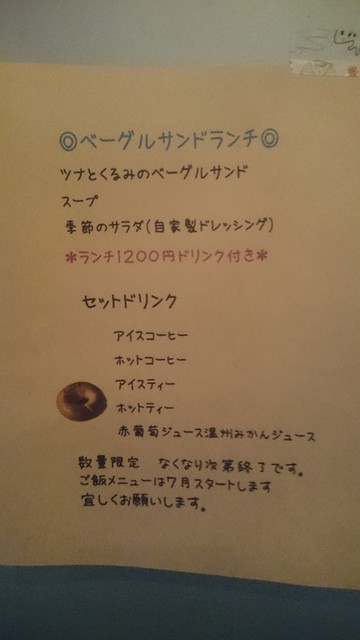 ◎ベーグルサンドランチ◎
ツナとくるみのベーグルサンド
スープ
季節のサラダ(自家製ドレッシング)
*ランチ1200円ドリンク付き*
セットドリンク
アイスコーヒー
ホットコーヒー
アイスティー
ホットティー
赤葡萄ジュース温州みかんジュース
数量限定 なくなり次第終了です。
ご飯メニューは7月スタートします
宜しくお願いします。